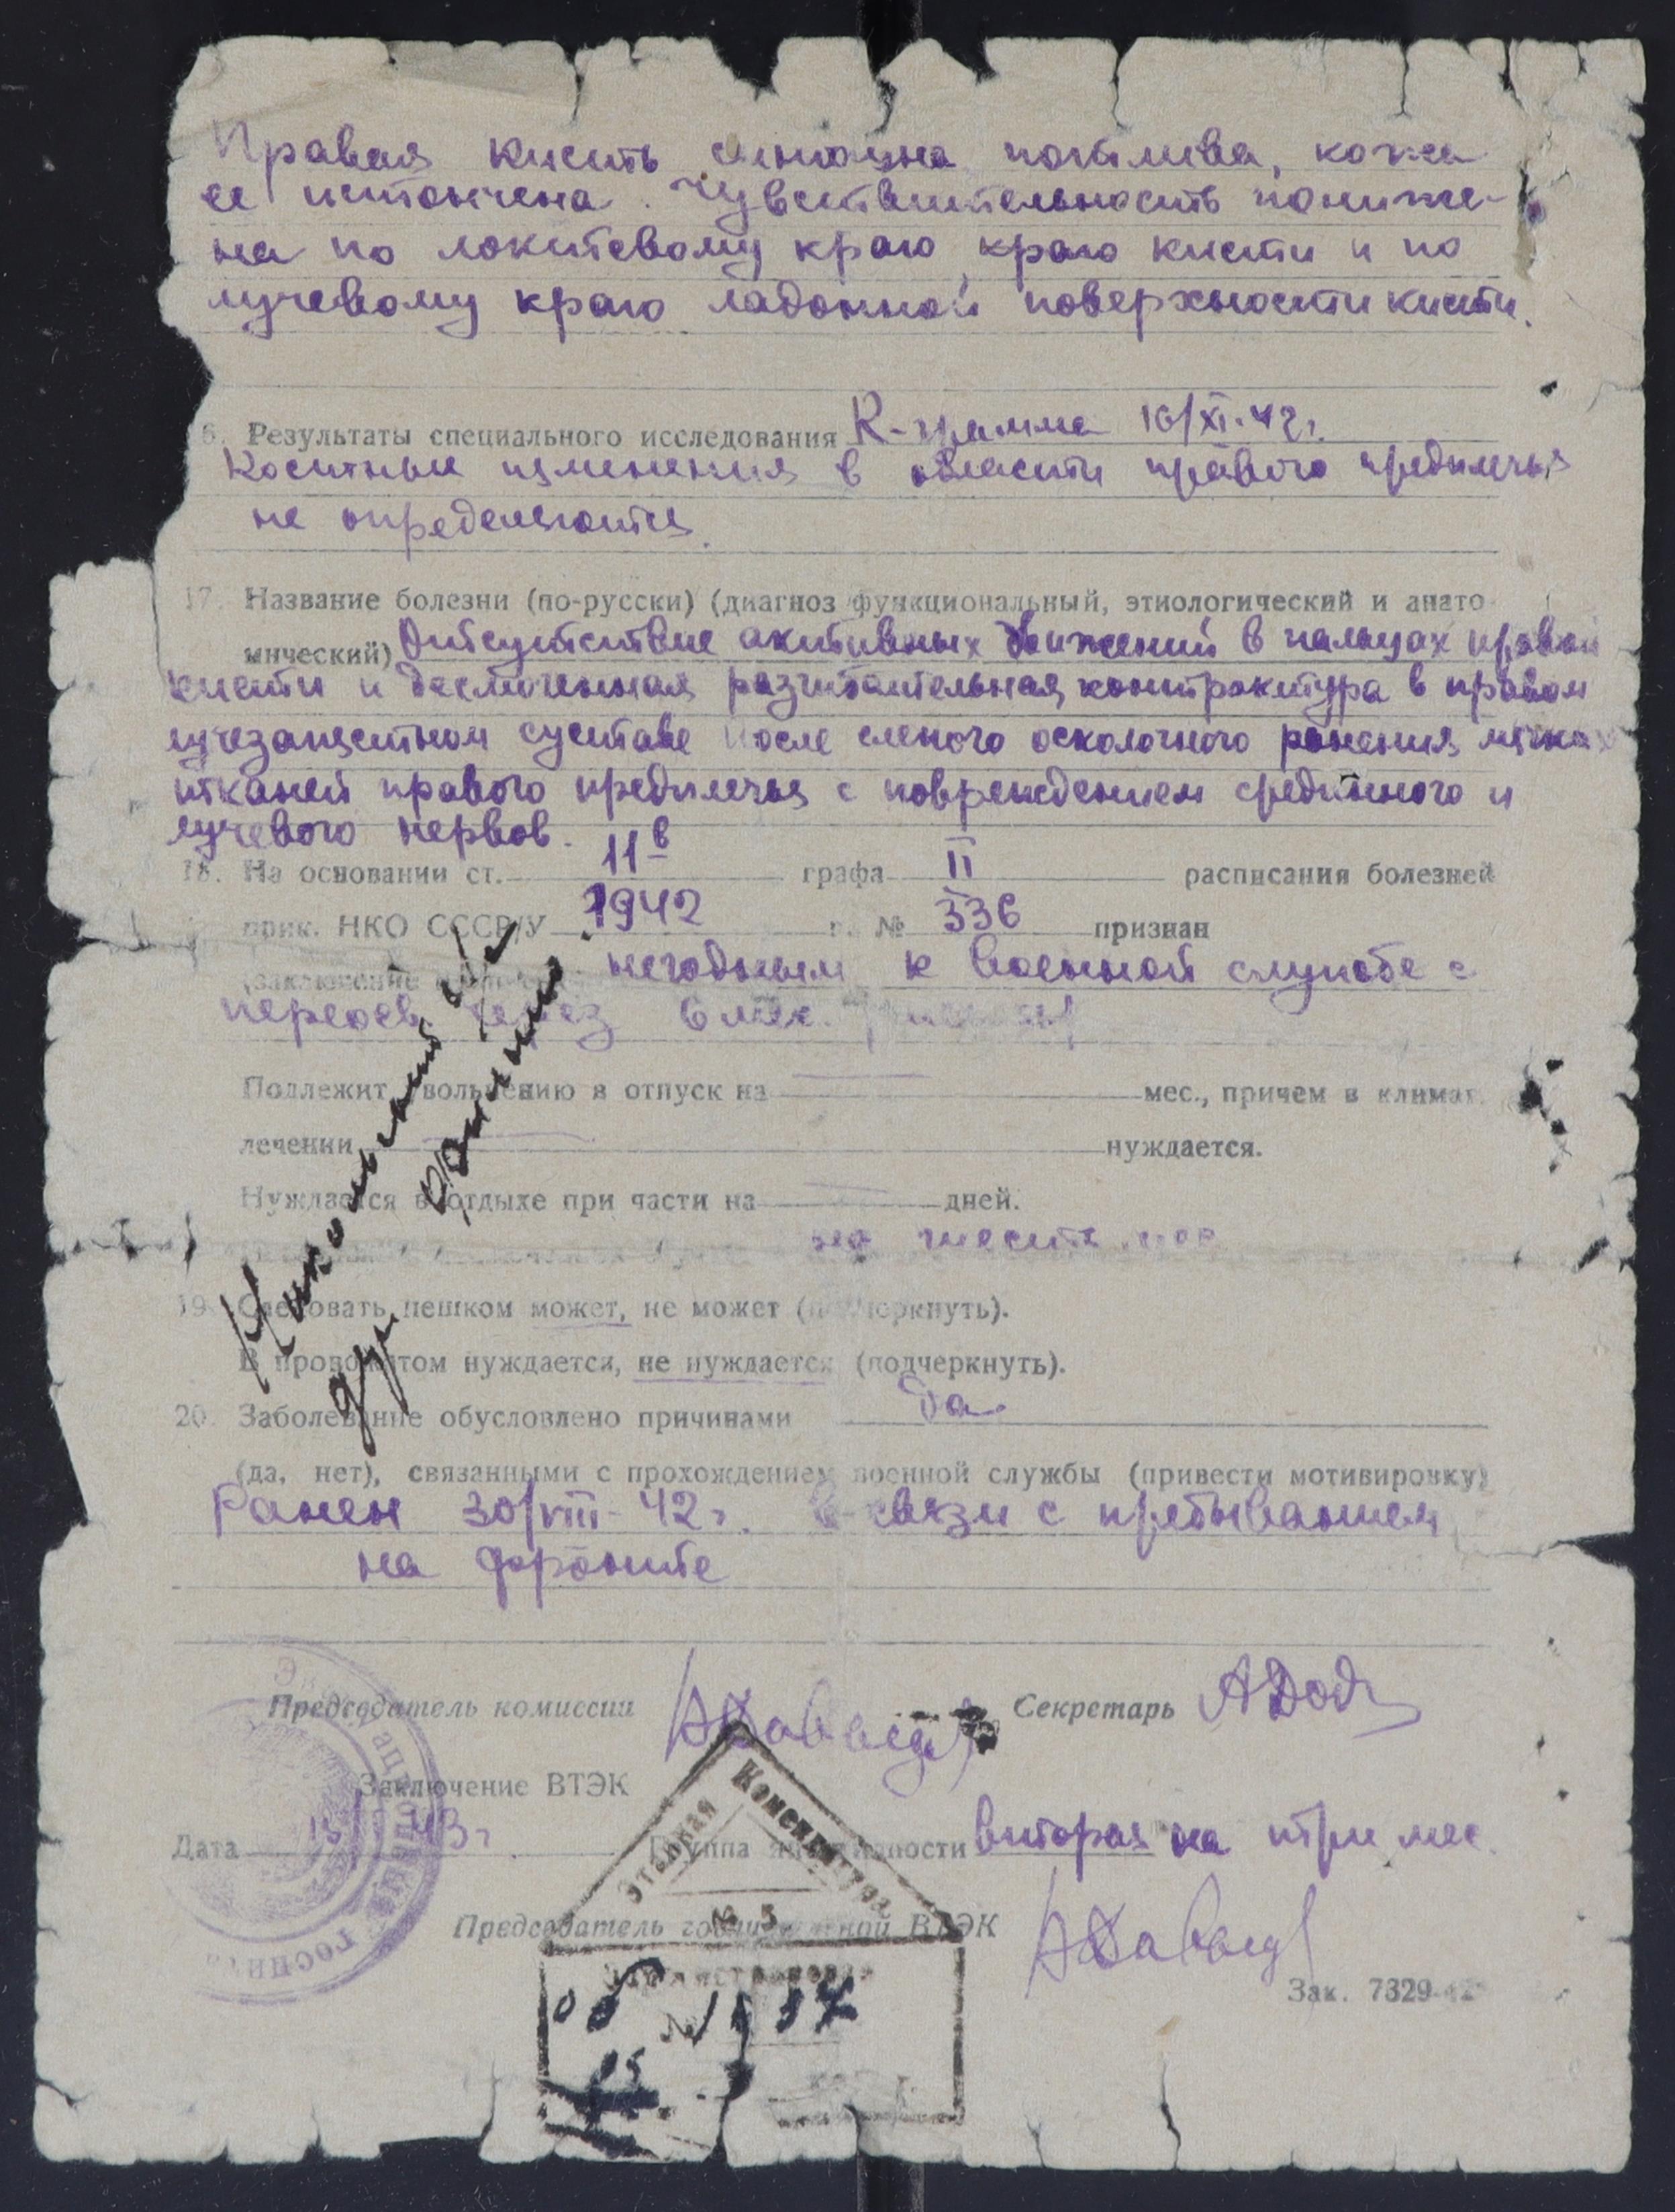 Правая кисть синюшна потлива, кожа
ее истончена. Чувствительность пониже-
на по локтевому краю краю кисти и по
лучевому краю ладонной поверхности кисти.
6. Результаты специального исследования R-грамма 16/XI-42г.
Костные изменения в области правого предплечья
не определяются.
17. Название болезни (по-русски) (диагноз функциональный, этиологический и анато
мический) Отсутствие активных движений в пальцах правой
кисти и разгибательная контрактура в правом
лучезапястном суставе после слепого осколочного ранения мягких
тканей правого предплечья с повреждением срединного и
лучевого нервов.
18. На основании ст. 11в графа II расписания болезней
прик. НКО СССР/У 1942 г. № 336 признан
(заключение негодным к военной службе с
переосв. через 6 мес.
Подлежит увольнению в отпуск на мес., причем в климат.
лечении нуждается.
Нуждается в отдыхе при части на дней.
19. Следовать пешком может, не может (подчеркнуть).
В провожатом нуждается, не нуждается (подчеркнуть).
20. Заболевание обусловлено причинами да
(да, нет), связанными с прохождением военной службы (привести мотивировку)
Ранен 30/VIII-42г. в связи с пребыванием
на фронте
Председатель комиссии Секретарь
Заключение ВТЭК
Дата 43г Группа инвалидности вторая на три мес.
Председатель госпитальной ВТЭК
Зак. 7329-42
Этапная Комендатура
№ 5
госпиталь